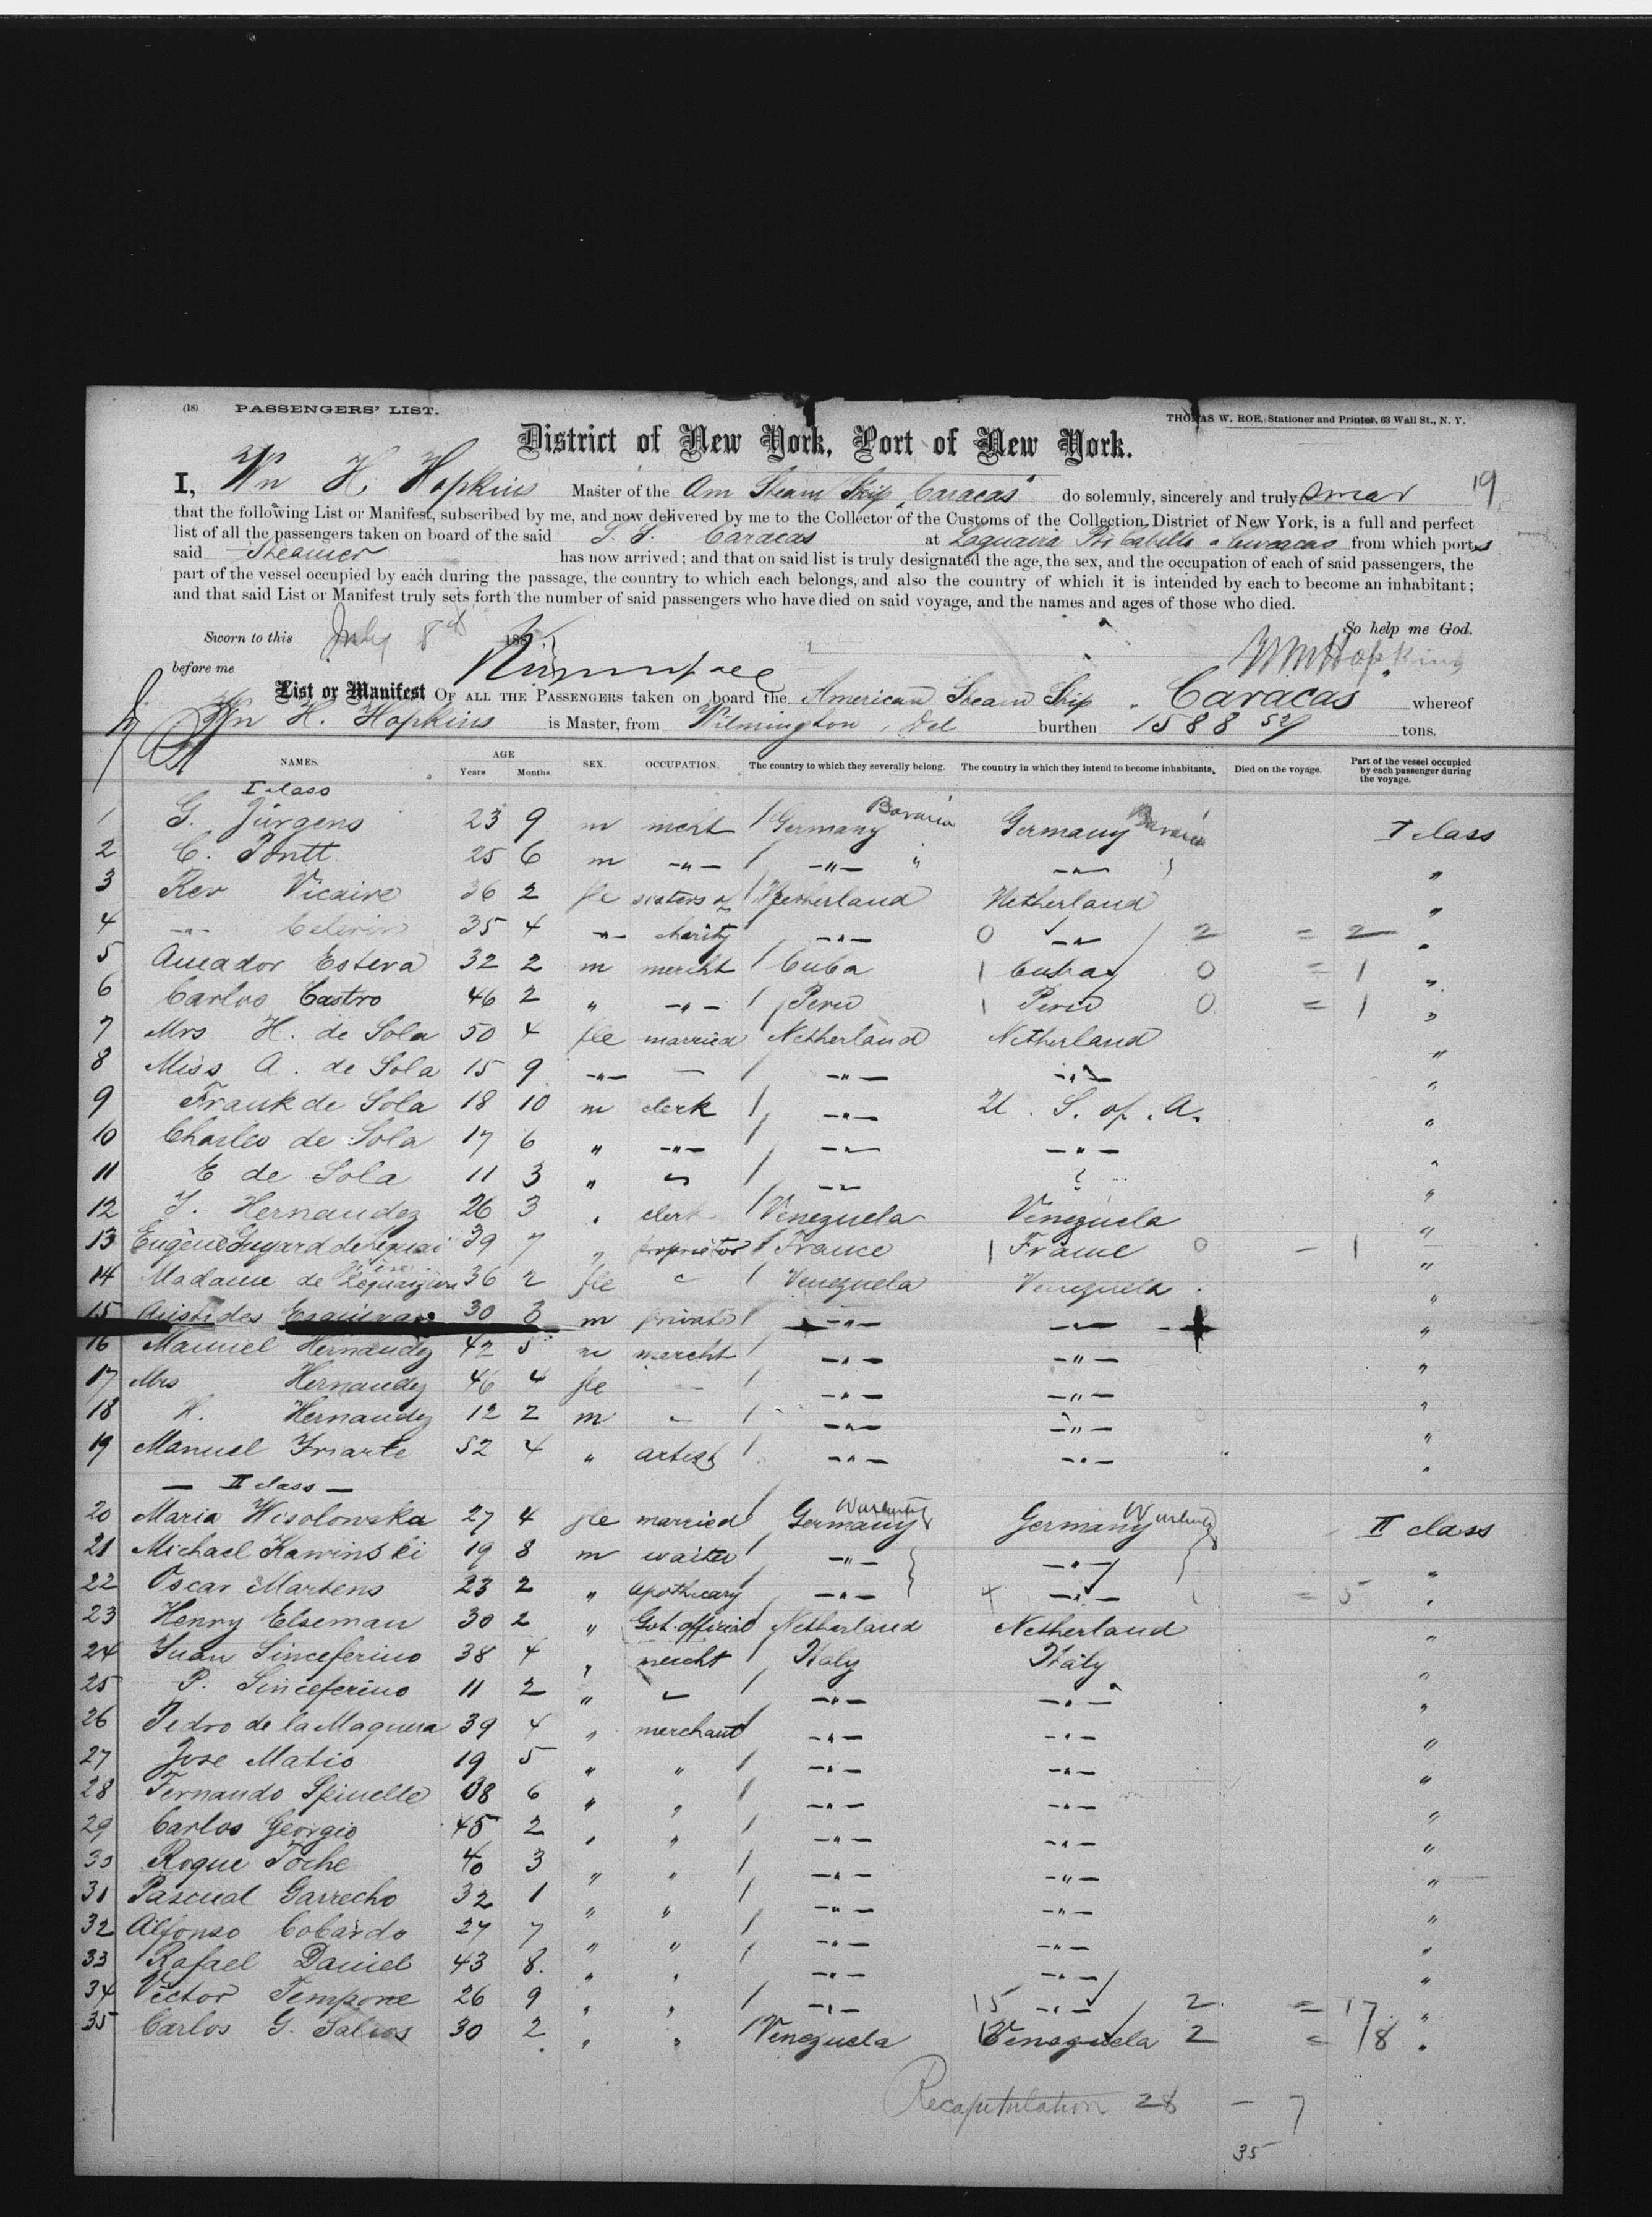 (18) PASSENGERS' LIST. THOMAS W. ROE, Stationer and Printer, 63 Wall St., N. Y.
District of New York, Port of New York.
19
I, Wm H. Hopkins Master of the Am Steam Ship "Caracas" do solemnly, sincerely and truly swear
that the following List or Manifest, subscribed by me, and now delivered by me to the Collector of the Customs of the Collection District of New York, is a full and perfect
list of all the passengers taken on board of the said S. S. Caracas at Laguaira Pto Cabello & Curacao from which ports
said Steamer has now arrived; and that on said list is truly designated the age, the sex, and the occupation of each of said passengers, the
part of the vessel occupied by each during the passage, the country to which each belongs, and also the country of which it is intended by each to become an inhabitant;
and that said List or Manifest truly sets forth the number of said passengers who have died on said voyage, and the names and ages of those who died.
So help me God.
Sworn to this July 8th 188
before me Wm H Hopkins
List or Manifest OF ALL THE PASSENGERS taken on board the American Steam Ship "Caracas" whereof
Wm H. Hopkins is Master, from Wilmington, Del burthen 1588 tons.
NAMES. AGE Years Months SEX. OCCUPATION. The country to which they severally belong. The country in which they intend to become inhabitants. Died on the voyage. Part of the vessel occupied by each passenger during the voyage.
I class
1 G. Jürgens 23 9 m mcht / Germany Bavaria Germany Bavaria I class
2 C. 25 6 m -"- / -"- " -"- "
3 Rev Vicaire 36 2 fle sisters of / Netherland Netherland "
4 -"- Celerin 35 4 -"- charity -"- 0 -"- 2 = 2 "
5 Amador Esteva 32 2 m mercht / Cuba 1 Cuba 0 = 1 "
6 Carlos Castro 46 2 " -"- / Peru 1 Peru 0 = 1 "
7 Mrs H. de Sola 50 4 fle married Netherland Netherland "
8 Miss A. de Sola 15 9 -"- — / -"- -"- "
9 Frank de Sola 18 10 m clerk / -"- U. S. of. A. "
10 Charles de Sola 17 6 " -"- / -"- -"- "
11 E de Sola 11 3 " / -"- "
12 J. Hernandez 26 3 " clerk / Venezuela Venezuela "
13 Eugène 39 7 " proprietor / France 1 France 0 - 1 "
14 Madame de 36 2 fle / Venezuela Venezuela "
15 Aristides 30 3 m private / -"- -"- "
16 Manuel Hernandez 42 5 m mercht / -"- -"- "
17 Mrs Hernandez 46 4 fle — / -"- -"- "
18 H. Hernandez 12 2 m - / -"- -"- "
19 Manuel Iriarte 52 4 " artist / -"- -"- "
— II class —
20 Maria Wisolowska 27 4 fle married / Germany Germany II class
21 Michael Kawinski 19 8 m waiter / -"- -"- "
22 Oscar Martens 23 2 " apothecary / -"- 4 -"- 1 = 5 "
23 Henry Elseman 30 2 " Gvt. official Netherland Netherland "
24 Juan Sinceferino 38 4 " mercht / Italy Italy "
25 P. Sinceferino 11 2 " - / -"- -"- "
26 Pedro de la Maquera 39 4 " merchant -"- -"- "
27 Jose Matio 19 5 " " / -"- -"- "
28 Fernando Spinelle 38 6 " " / -"- -"- "
29 Carlos Georgio 45 2 " " / -"- -"- "
30 Roque Toche 40 3 " " / -"- -"- "
31 Pascual Garrecho 32 1 " " / -"- -"- "
32 Alfonso Cobardo 27 7 " " / -"- -"- "
33 Rafael Daniel 43 8 " " / -"- -"- "
34 Victor Tempone 26 9 " " / -"- 15 -"- 2 = 17 "
35 Carlos G. Salios 30 2 " " / Venezuela Venezuela 2 = 8 "
Recapitulation 28 - 7
35